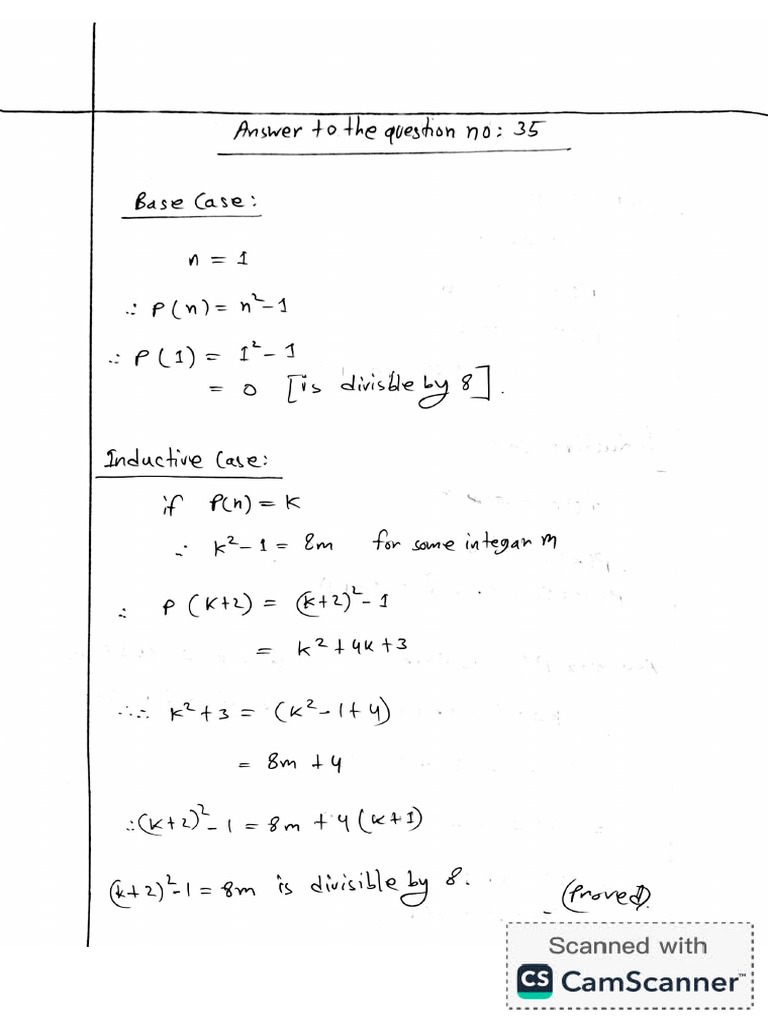 Answer to the question no: 35
Base Case:
n = 1
∴ P(n) = n²-1
∴ P(1) = 1² - 1
= 0 [is divisble by 8].
Inductive Case:
if P(n) = K
∴ k² - 1 = 8m for some integar m
∴ P(K+2) = (k+2)² - 1
= k² + 4k + 3
∴∴ k² + 3 = (k² - 1 + 4)
= 8m + 4
∴ (k+2)² - 1 = 8m + 4(k+1)
(k+2)² - 1 = 8m is divisible by 8.
(Proved).
Scanned with
CS CamScanner™